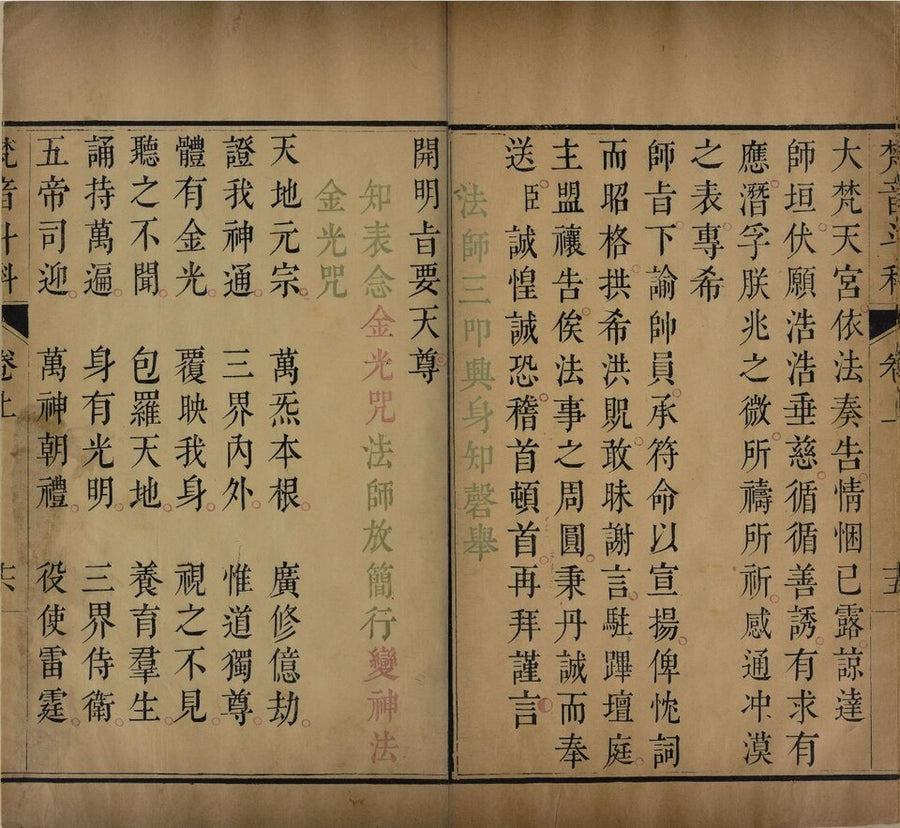 大梵天宮依法奏告情悃已露諒達
師垣伏願浩浩垂慈循循善誘有求有
應潛孚朕兆之微所禱所祈感通冲漠
之表專希
師㫖下諭帥員承符命以宣揚俾忱詞
而昭格拱希洪貺敢昧謝言駐蹕壇庭
主盟禳告俟法事之周圓秉丹誠而奉
送臣誠惶誠恐稽首頓首再拜謹言
法師三叩興身知磬舉
開明㫖要天尊
知表念金光咒法師放簡行變神法
金光咒
天地元宗 萬炁本根 廣修億劫
證我神通 三界內外 惟道獨尊
體有金光 覆映我身 視之不見
聽之不聞 包羅天地 養育羣生
誦持萬遍 身有光明 三界侍衛
五帝司迎 萬神朝禮 役使雷霆
卷上